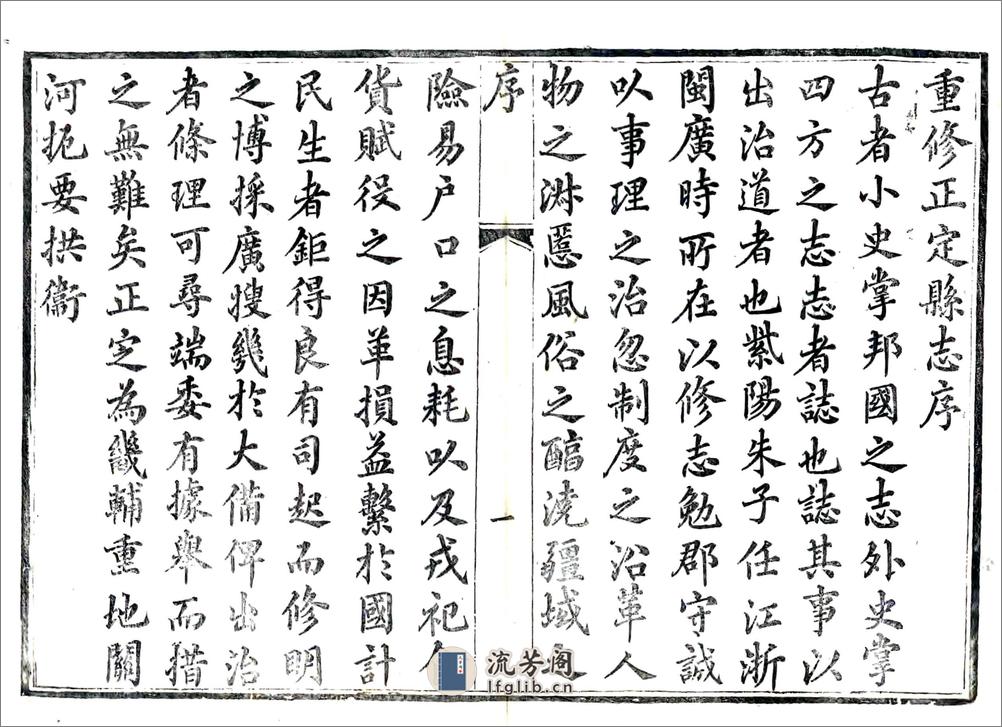 重修正定縣志序
古者小史掌邦國之志外史掌
四方之志志者誌也誌其事以
出治道者也紫陽朱子任江浙
閩廣時所在以修志勉郡守誠
以事理之治忽制度之沿革人
物之淋慝風俗之醕澆疆域之
序
一
險易户口之息耗以及戎祀食
貨賦役之因革損益繫於國計
民生者鉅得良有司起而修明
之博採廣搜幾於大備俾出治
者條理可尋端委有據舉而措
之無難矣正定為畿輔重地關
河扼要拱衞
流芳阁
lfglib.cn